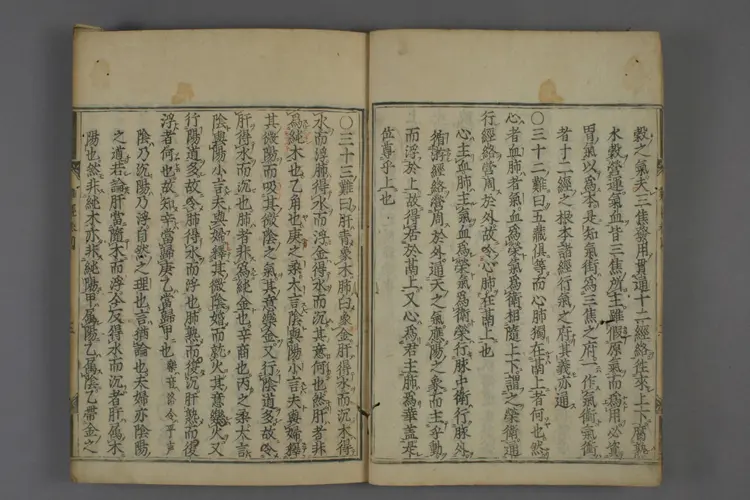 穀之氣夫三焦發用貫通十二經絡往來上下腐熟
水穀營運氣血皆三焦所主雖假原氣而爲用必資
胃氣以爲本是知氣街爲三焦之府一作氣衝氣衝
者十二經之根本諸經行氣之府其義亦通
〇三十二難曰五藏俱等而心肺獨在膈上者何也然
心者血肺者氣血爲榮氣爲衛相隨上下謂之榮衛通
行經絡營周於外故令心肺在膈上也
心主血肺主氣血爲榮氣爲衛榮行脉中衛行脉外
循行經絡營周於外通天之氣應陽之象而主乎動
而浮於上故得居於膈上又心爲君主肺爲華蓋亦
位尊乎上也
〇三十三難曰肝青象木肺白象金肝得水而沉木得
水而浮肺得水而浮金得水而沉其意何也然肝者非
爲純木也乙角也庚之柔大言陰與陽小言夫與婦釋
其微陽而吸其微陰之氣其意樂金又行陰道多故令
肝得水而沉也肺者非爲純金也辛商也丙之柔大言
陰與陽小言夫與婦釋其微陰婚而就火其意樂火又
行陽道多故令肺得水而浮也肺熟而復沉肝熟而復
浮者何也故知辛當歸庚乙當歸甲也
陰乃沉陽乃浮自然之理也言猶論也夫婦亦陰陽
之道若論肝當隨木而浮今反得水而沉者肝屬木
陽也然非純木亦非純陽甲屬陽乙屬陰乙帶金之